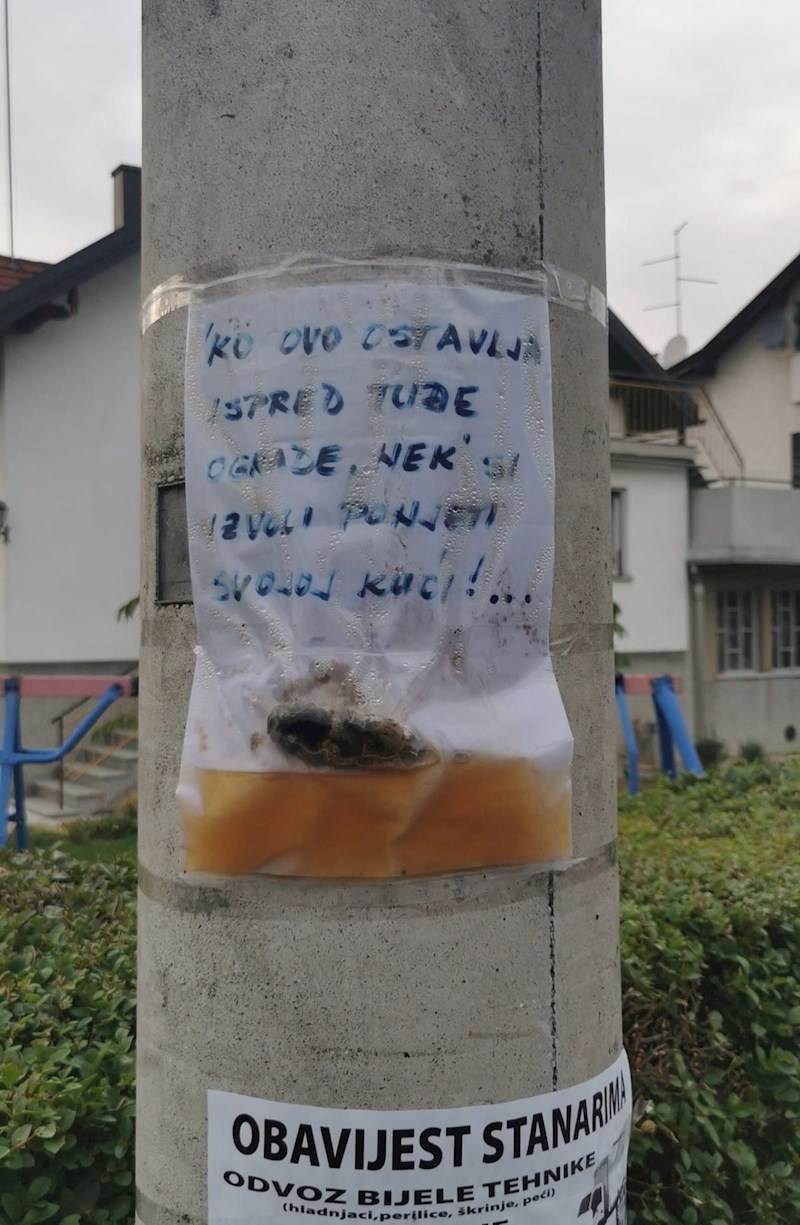 'KO OVO OSTAVLJA
ISPRED TUĐE
OGRADE, NEK' SI
IZVOLI PONJETI
SVOJOJ KUĆI!...
OBAVIJEST STANARIMA
ODVOZ BIJELE TEHNIKE
(hladnjaci,perilice, škrinje, peći)